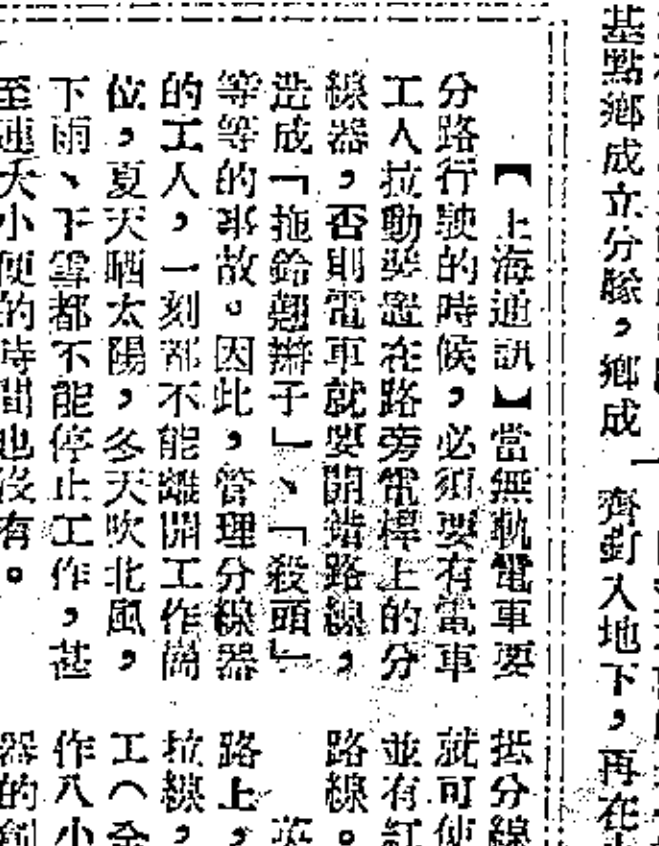 基點鄉成立分縣，鄉成
齊釘入地下，再在
【上海通訊】當無軌電車要
分路行駛的時候，必須要有電車
工人拉動裝置在路旁電桿上的分
線器，否則電車就要開錯路線，
造成「拖鈴翹辮子」、「殺頭」
等等的事故。因此，管理分線器
的工人，一刻都不能離開工作崗
位，夏天晒太陽，冬天吹北風，
下雨、下雪都不能停止工作，甚
至連大小便的時間也沒有。
抵分線
就可使
並有紅
路線。
英
路上，
拉線，
工（全
作八小
器的創